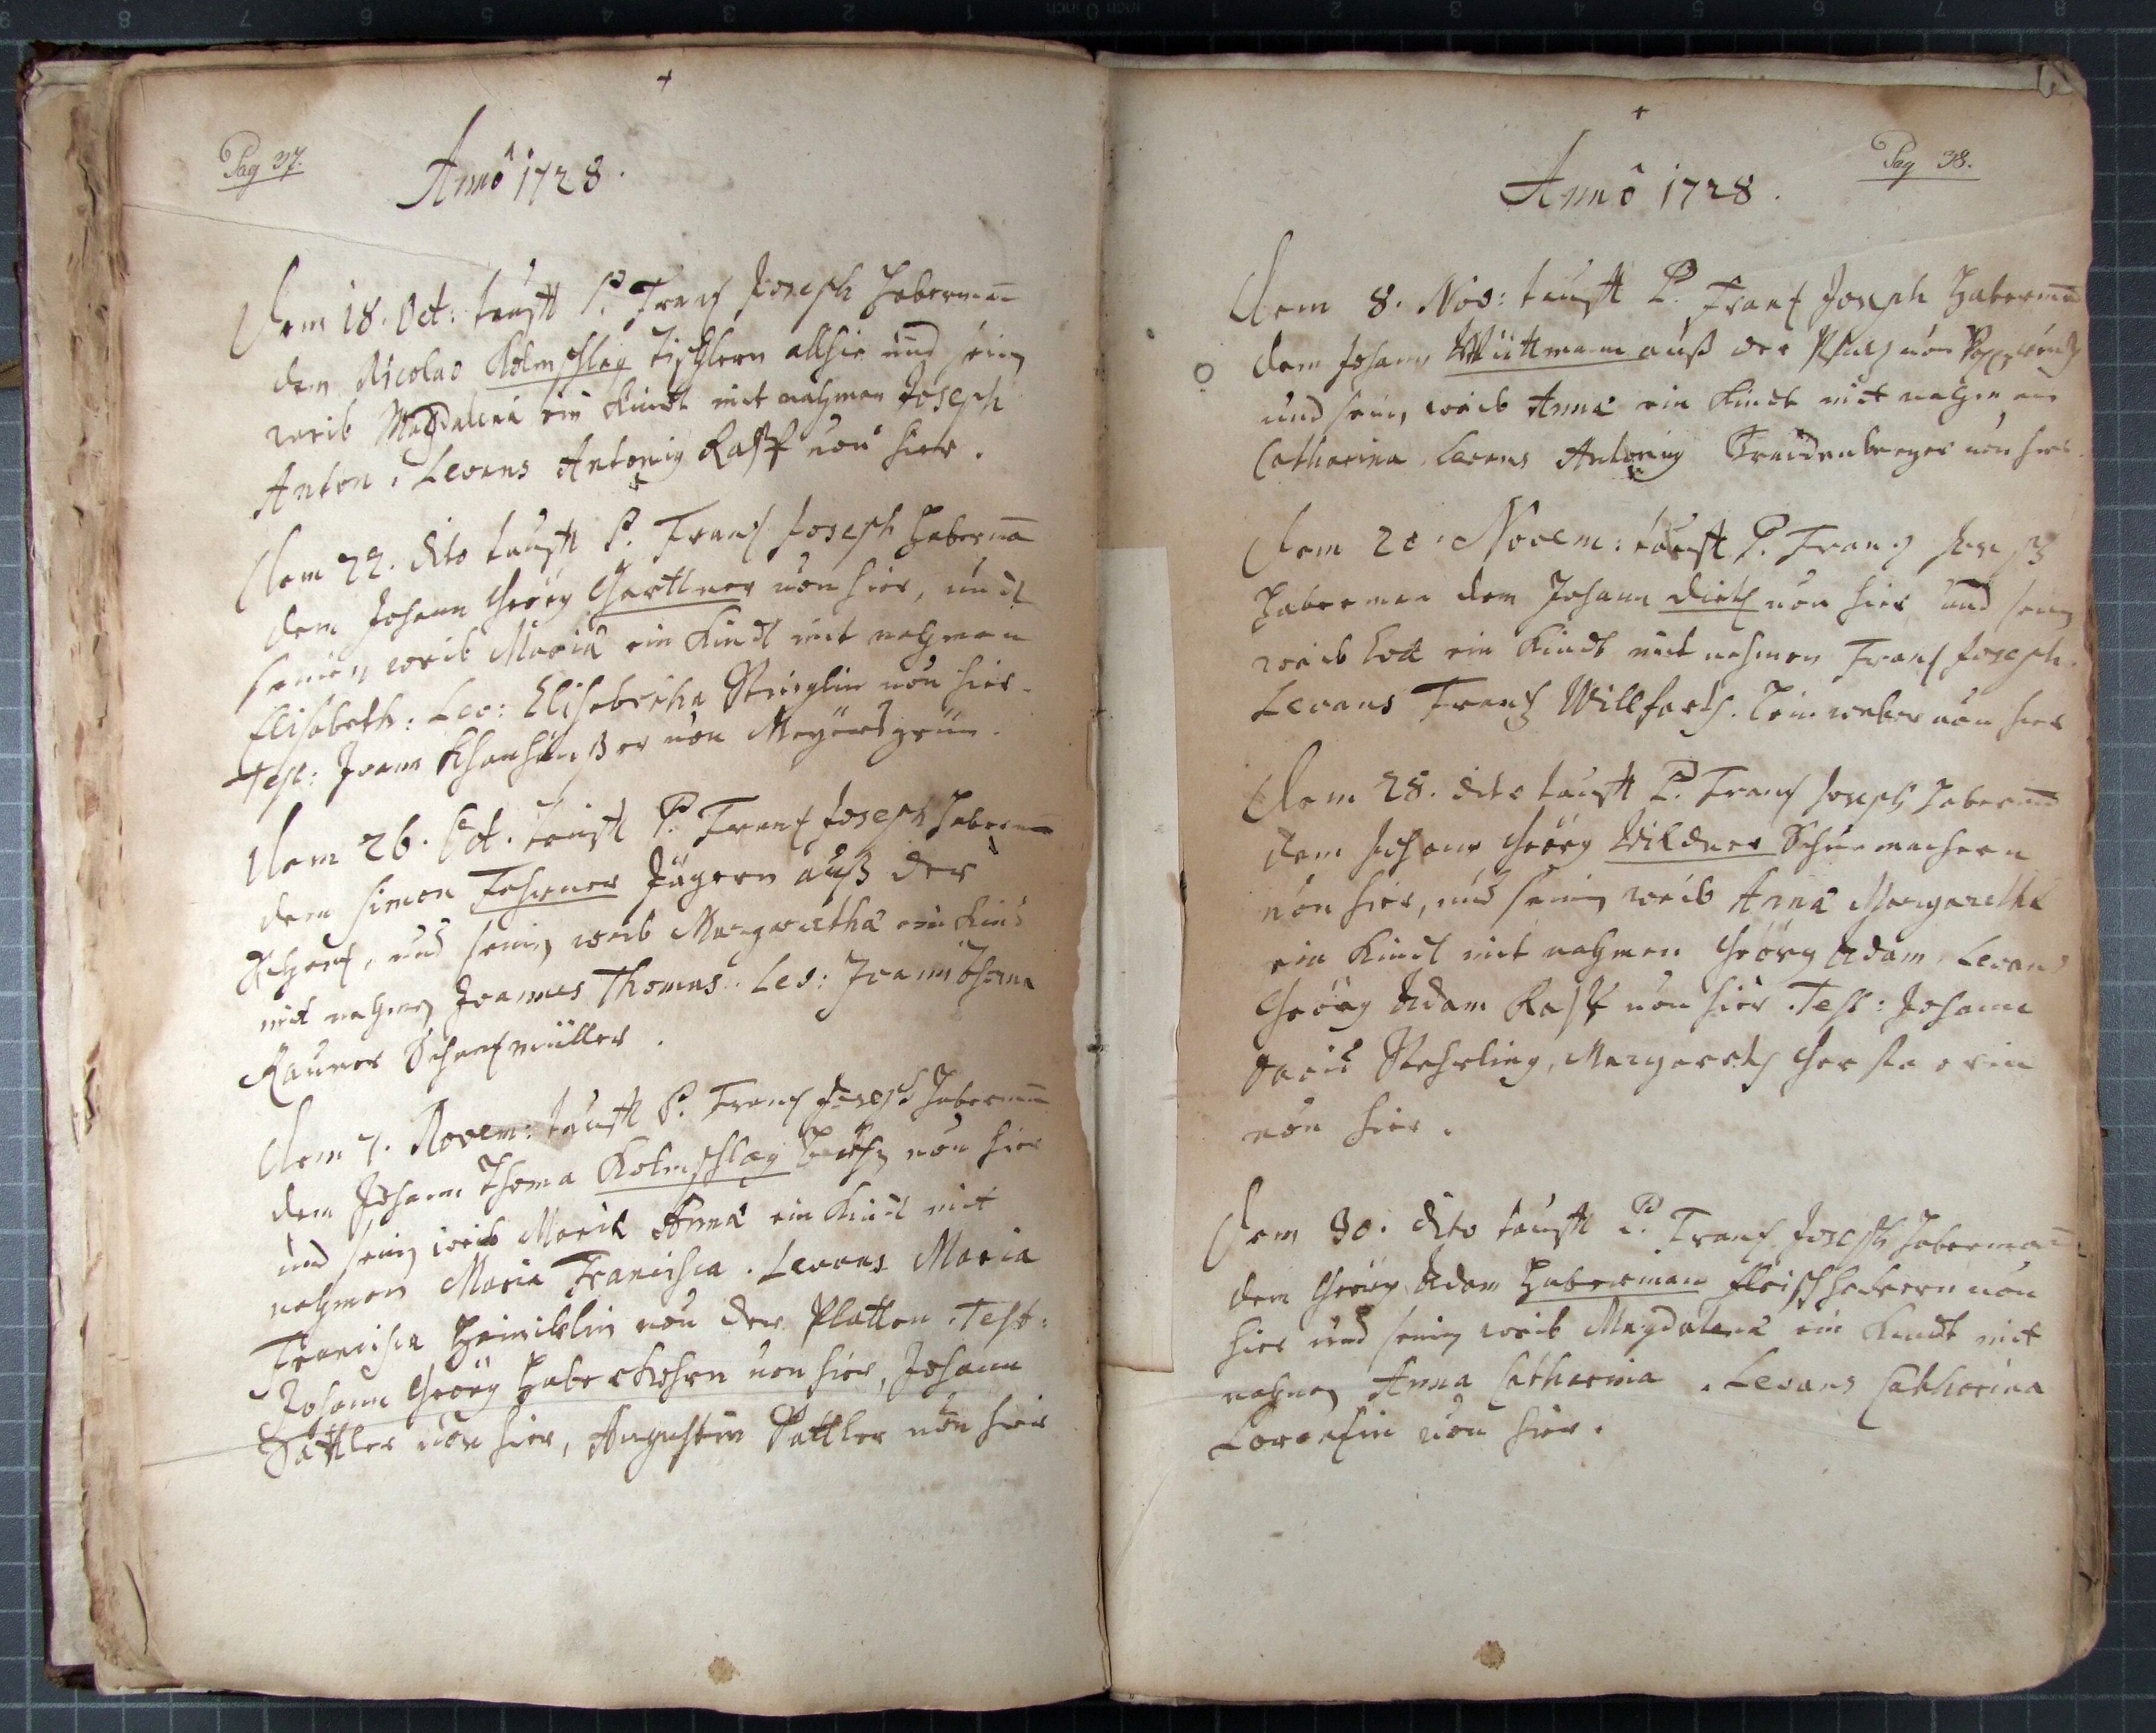 Pag 37.
Annô 1728.
Dem 18. Oct: taufft P. Frantz Joseph Haberman
dem Nicolao Kolmschlag Tischlern allhie und sein
weib Magdalena ein Kindt mit nahmen Joseph
Anton. Levans Antoniy Raff von hier.
Dem 22. dito taufft P. Frantz Joseph Haberman
dem Johann Geörg Garttner von hier, undt
seinen weib Maria ein Kindt mit nahmen
Elisabeth: Lev: Elisabetha von hier.
Test: Joann von Meyersgrün.
Dem 26. Oct. taufft P. Frantz Joseph Haberman
dem Simon Fohrner Jägern auß der
und seinen weib Margaretha ein Kind
mit nahmen Joannes Thomas. Lev: Joann Thoma
Rauner
Dem 7. Novem: taufft P. Frantz Joseph Haberman
dem Johann Thoma Kolmschlag von hier
und sein weib Maria Anna ein Kindt mit
nahmen Maria Francisca. Levans Maria
Francisca Heinicklin von der Platten. Test:
Johann Geörg Haberkohrn von hier, Johann
Sattler von hier, Augustin Sattler von hier
Pag 38.
Annô 1728.
Dem 8. Nov: taufft P. Frantz Joseph Haberman
dem Johann Wüttmann auß der
und sein weib Anna ein Kindt mit nahmen
Catharina Levans Antoniy von hier
Dem 20. Novem: taufft P. Frantz Joseph
Haberman dem Johann Dietz von hier und sein
weib Eva ein Kindt mit nahmen Frantz Joseph.
Levans Frantz Willforth. von hier
Dem 28. dito taufft P. Frantz Joseph Haberman
dem Johann Geörg Wildner Schuemachern
von hier, und sein weib Anna Margaretha
ein Kindt mit nahmen Geörg Adam. Levans
Geörg Adam Raff von hier. Test: Johann
David Margareth
von hier.
Dem 30. dito taufft P. Frantz Joseph Haberman
dem Geörg Adam Haberman fleischhackern von
hier und sein weib Magdalena ein Kindt mit
nahmen Anna Catharina. Levans Catharina
Lorentzin von hier.